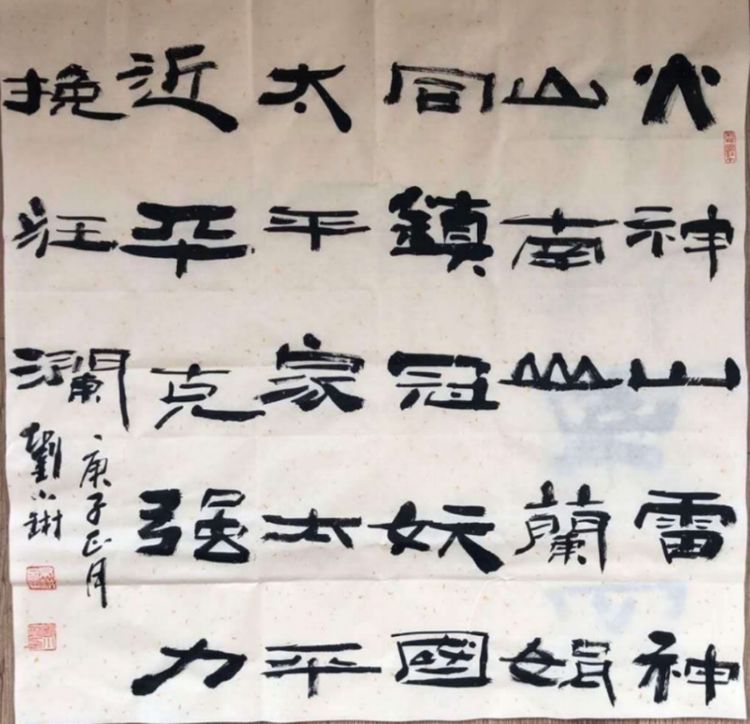 火神山雷神
山南山蘭娟
同鎮冠妖國
太平家太平
近平克强力
挽狂瀾
庚子正月
劉小